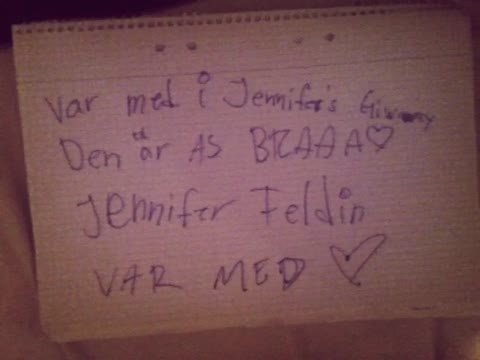 Var med i Jennifer's
Den är AS BRAAA♡
Jennifer Feldin
VAR MED ♡